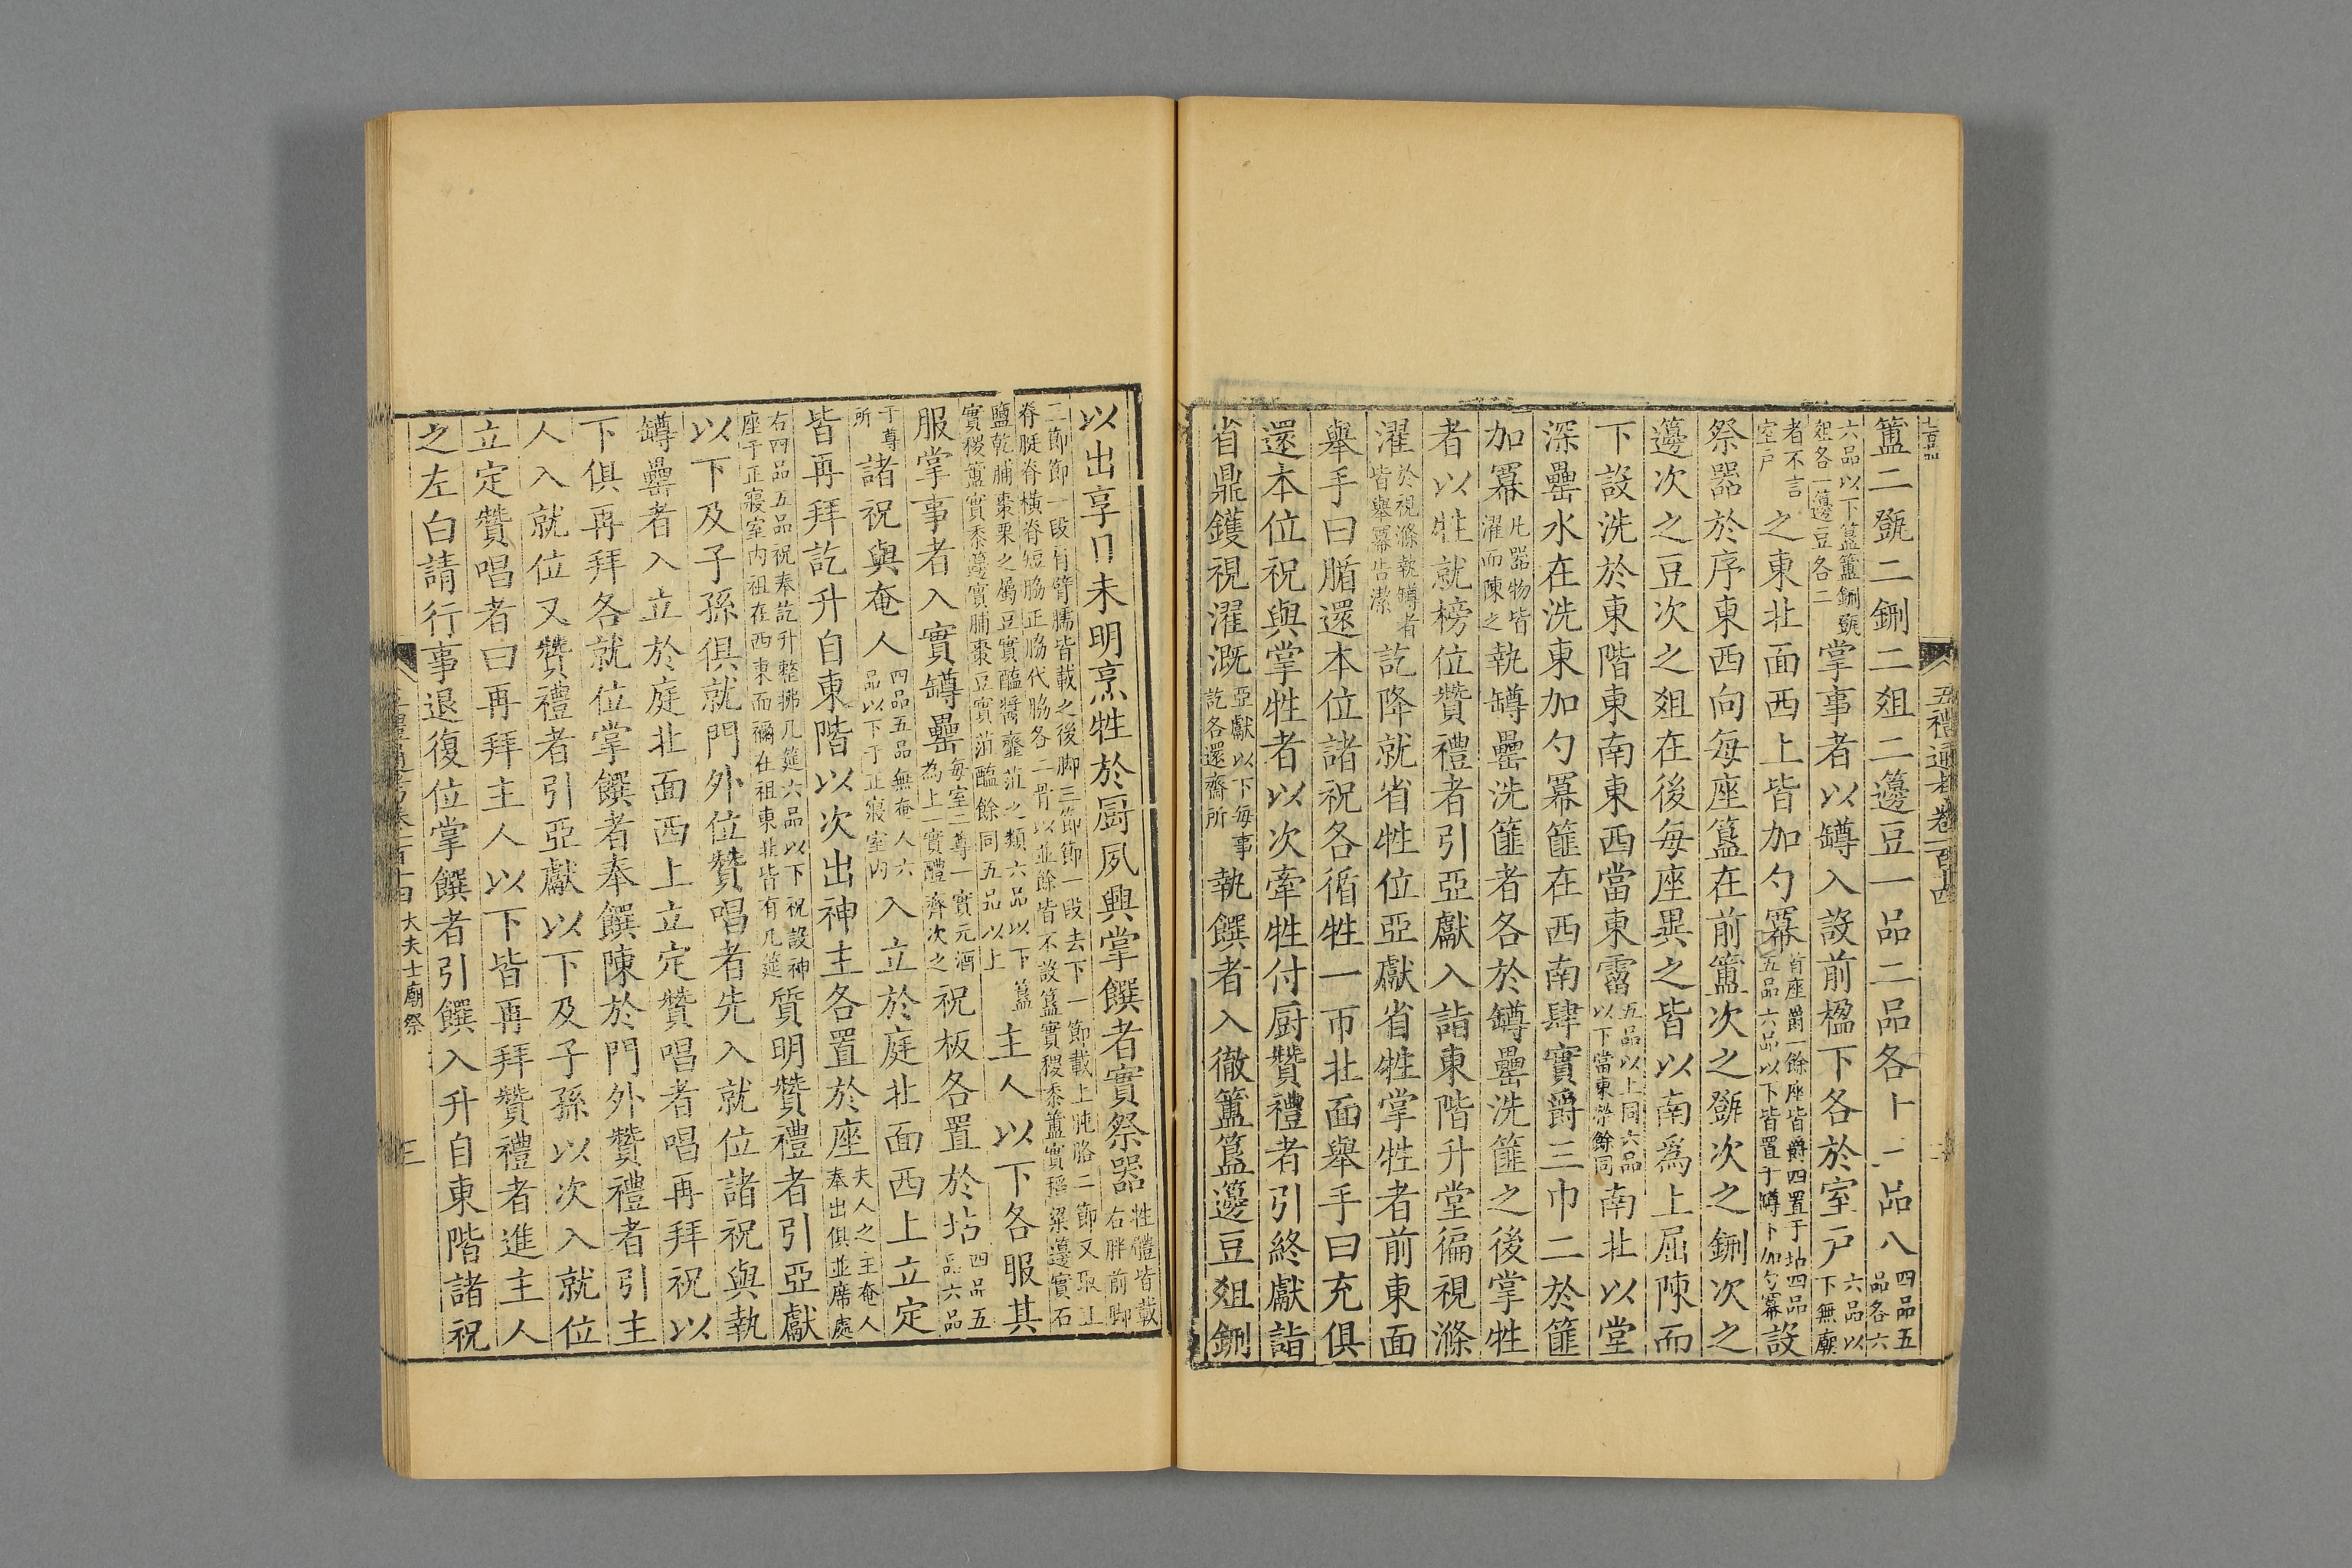 五禮通考卷一百十四
簠二㽅二鉶二俎二籩豆一品二品各十二品八四品五品各六
六品以下簋簠鉶㽅俎各一籩豆各二掌事者以罇入設前楹下各於室戶六品以下無廟
者不言室戶之東北面西上皆加勺冪首座爵一餘座皆爵四置于坫四品五品六品以下皆置于罇下加勺冪設
祭器於序東西向每座簋在前簠次之㽅次之鉶次之
籩次之豆次之俎在後每座異之皆以南爲上屈陳而
下設洗於東階東南東西當東霤五品以上同六品以下當東榮餘同南北以堂
深罍水在洗東加勺冪篚在西南肆實爵三巾二於篚
加冪凡器物皆濯而陳之執罇罍洗篚者各於罇罍洗篚之後掌牲
者以牲就榜位贊禮者引亞獻入詣東階升堂徧視滌
濯於視滌執罇者皆舉冪告潔訖降就省牲位亞獻省牲掌牲者前東面
舉手曰腯還本位諸祝各循牲一帀北面舉手曰充俱
還本位祝與掌牲者以次牽牲付厨贊禮者引終獻詣
省鼎鑊視濯溉亞獻以下每事訖各還齋所執饌者入徹簠簋籩豆俎鉶
以出享日未明烹牲於厨夙興掌饌者實祭器牲體皆載右胖前脚
三節節一段肩臂臑皆載之後脚三節節一段去下一節載上肫胳二節又取正
脊脡脊橫脊短脇正脇代脇各二骨以並餘皆不設簋實稷黍簠實稻粱籩實石
鹽乾脯棗栗之屬豆實醓醬虀菹之類六品以下簋
實稷簠實黍籩實脯棗豆實菹醢餘同五品以上主人以下各服其
服掌事者入實罇罍每室二尊一實元酒為上一實醴齊次之祝板各置於坫四品五品六品
于尊所諸祝與奄人四品五品無奄人六品以下于正寢室内入立於庭北面西上立定
皆再拜訖升自東階以次出神主各置於座夫人之主奄人奉出俱並席處
右四品五品祝奉訖升整拂几筵六品以下祝設神座于正寢室内祖在西東面禰在祖東北皆有几筵質明贊禮者引亞獻
以下及子孫俱就門外位贊唱者先入就位諸祝與執
罇罍者入立於庭北面西上立定贊唱者唱再拜祝以
下俱再拜各就位掌饌者奉饌陳於門外贊禮者引主
人入就位又贊禮者引亞獻以下及子孫以次入就位
立定贊唱者曰再拜主人以下皆再拜贊禮者進主人
之左白請行事退復位掌饌者引饌入升自東階諸祝
大夫士廟祭
三